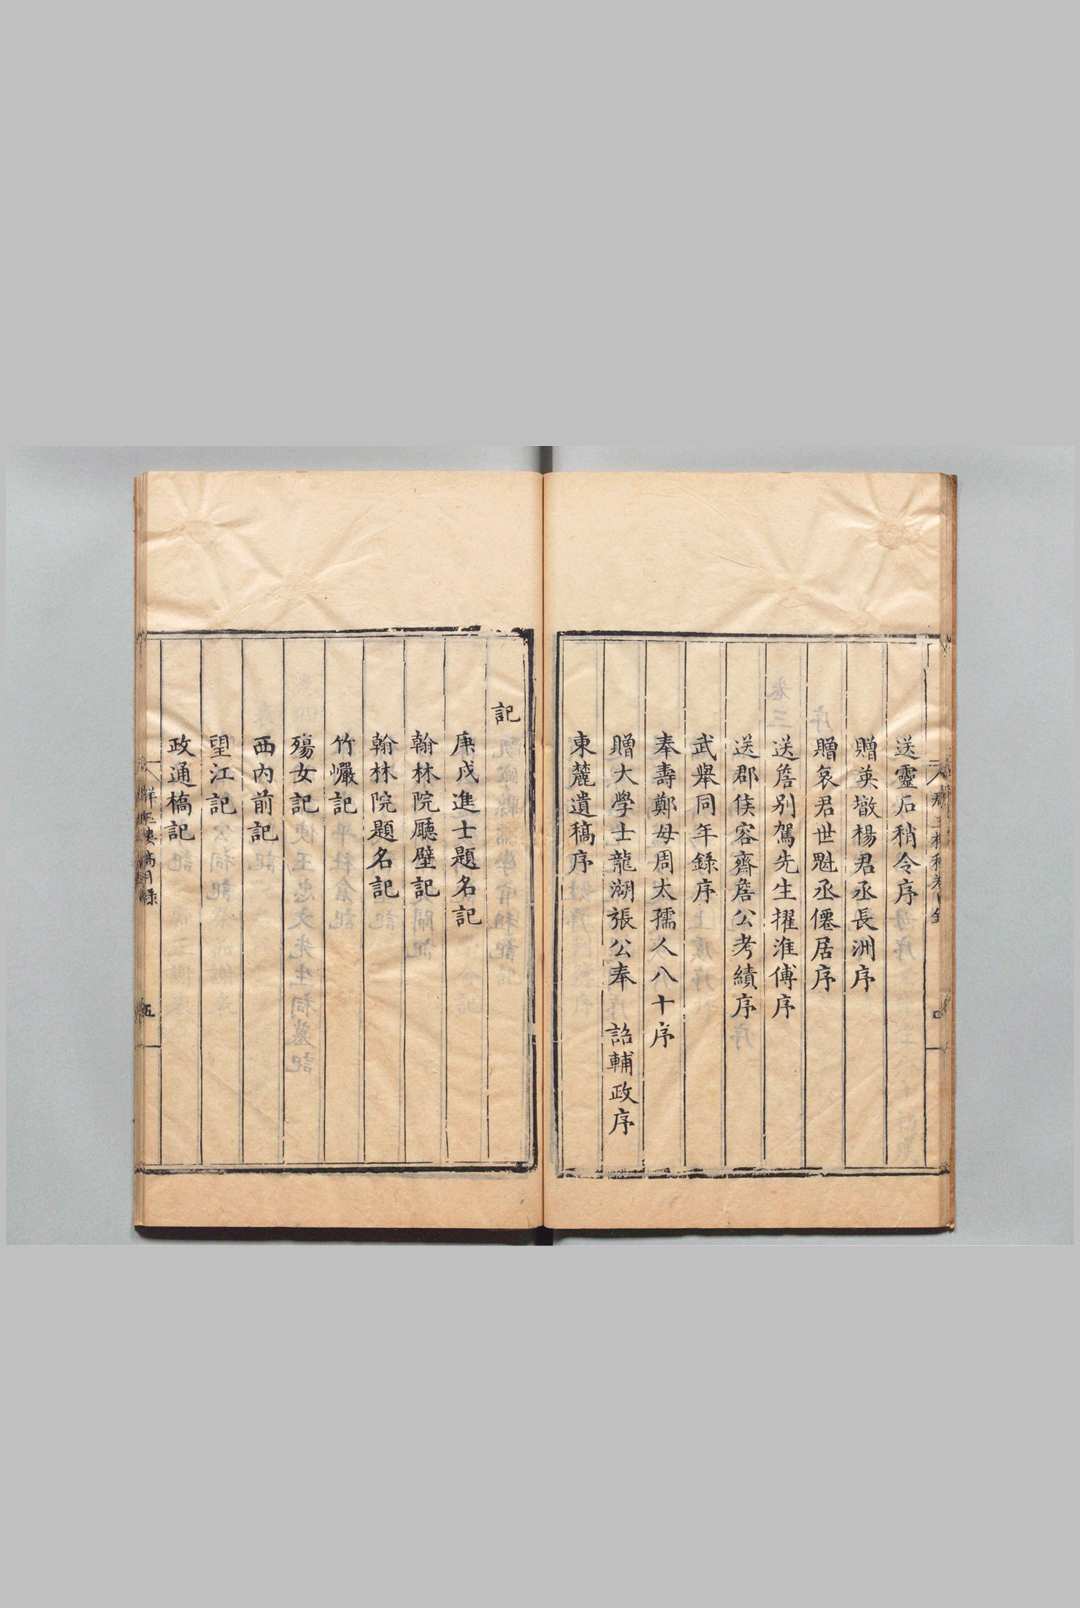 送靈石稍令序
贈英墩楊君丞長洲序
贈袁君世魁丞僊居序
送詹別駕先生擢淮傅序
送郡侯容齋詹公考績序
武舉同年錄序
奉壽鄭母周太孺人八十序
贈大學士龍湖張公奉 詔輔政序
東麓遺稿序
記
庚戌進士題名記
翰林院廳壁記
翰林院題名記
竹巖記
殤女記
西內前記
望江記
政通橋記
五